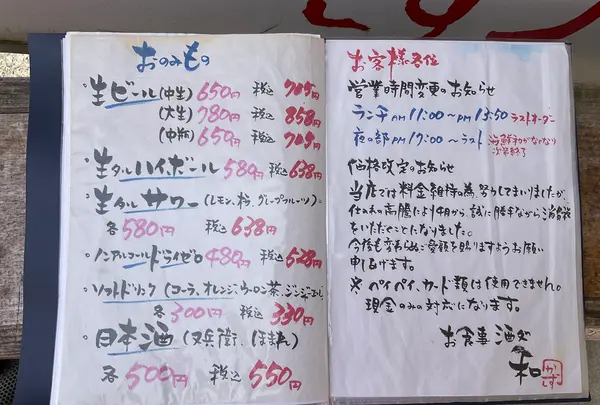 おのみもの
◦生ビール(中生) 650円 税込 715円
(大生) 780円 税込 858円
(中瓶) 650円 税込 715円
◦生タルハイボール 580円 税込 638円
◦生タルサワー (レモン、
グレープフルーツ)。
各 580円 税込 638円
◦ノンアルコールドライゼロ 480円 税込 528円
◦ソフトドリンク (コーラ、オレンジ、ウーロン茶、
各 300円 税込 330円
◦日本酒
各 500円 税込 550円
お客様各位
営業時間変更のお知らせ
ランチ AM 11:00 〜 PM 13:50 ラストオーダー
夜の部 PM 17:00 〜 ラスト
海鮮
なくなり
次第終了
価格改定のお知らせ
当店では料金維持の為、努力してまいりましたが、
仕入れの高騰により4月から、誠に勝手ながら
をいただくことになりました。
今後も変わらぬご愛顧を賜りますようお願い
申し上げます。
※ ペイペイ、カード類は使用できません。
現金のみの対応になります。
お食事 酒処
和
かずし